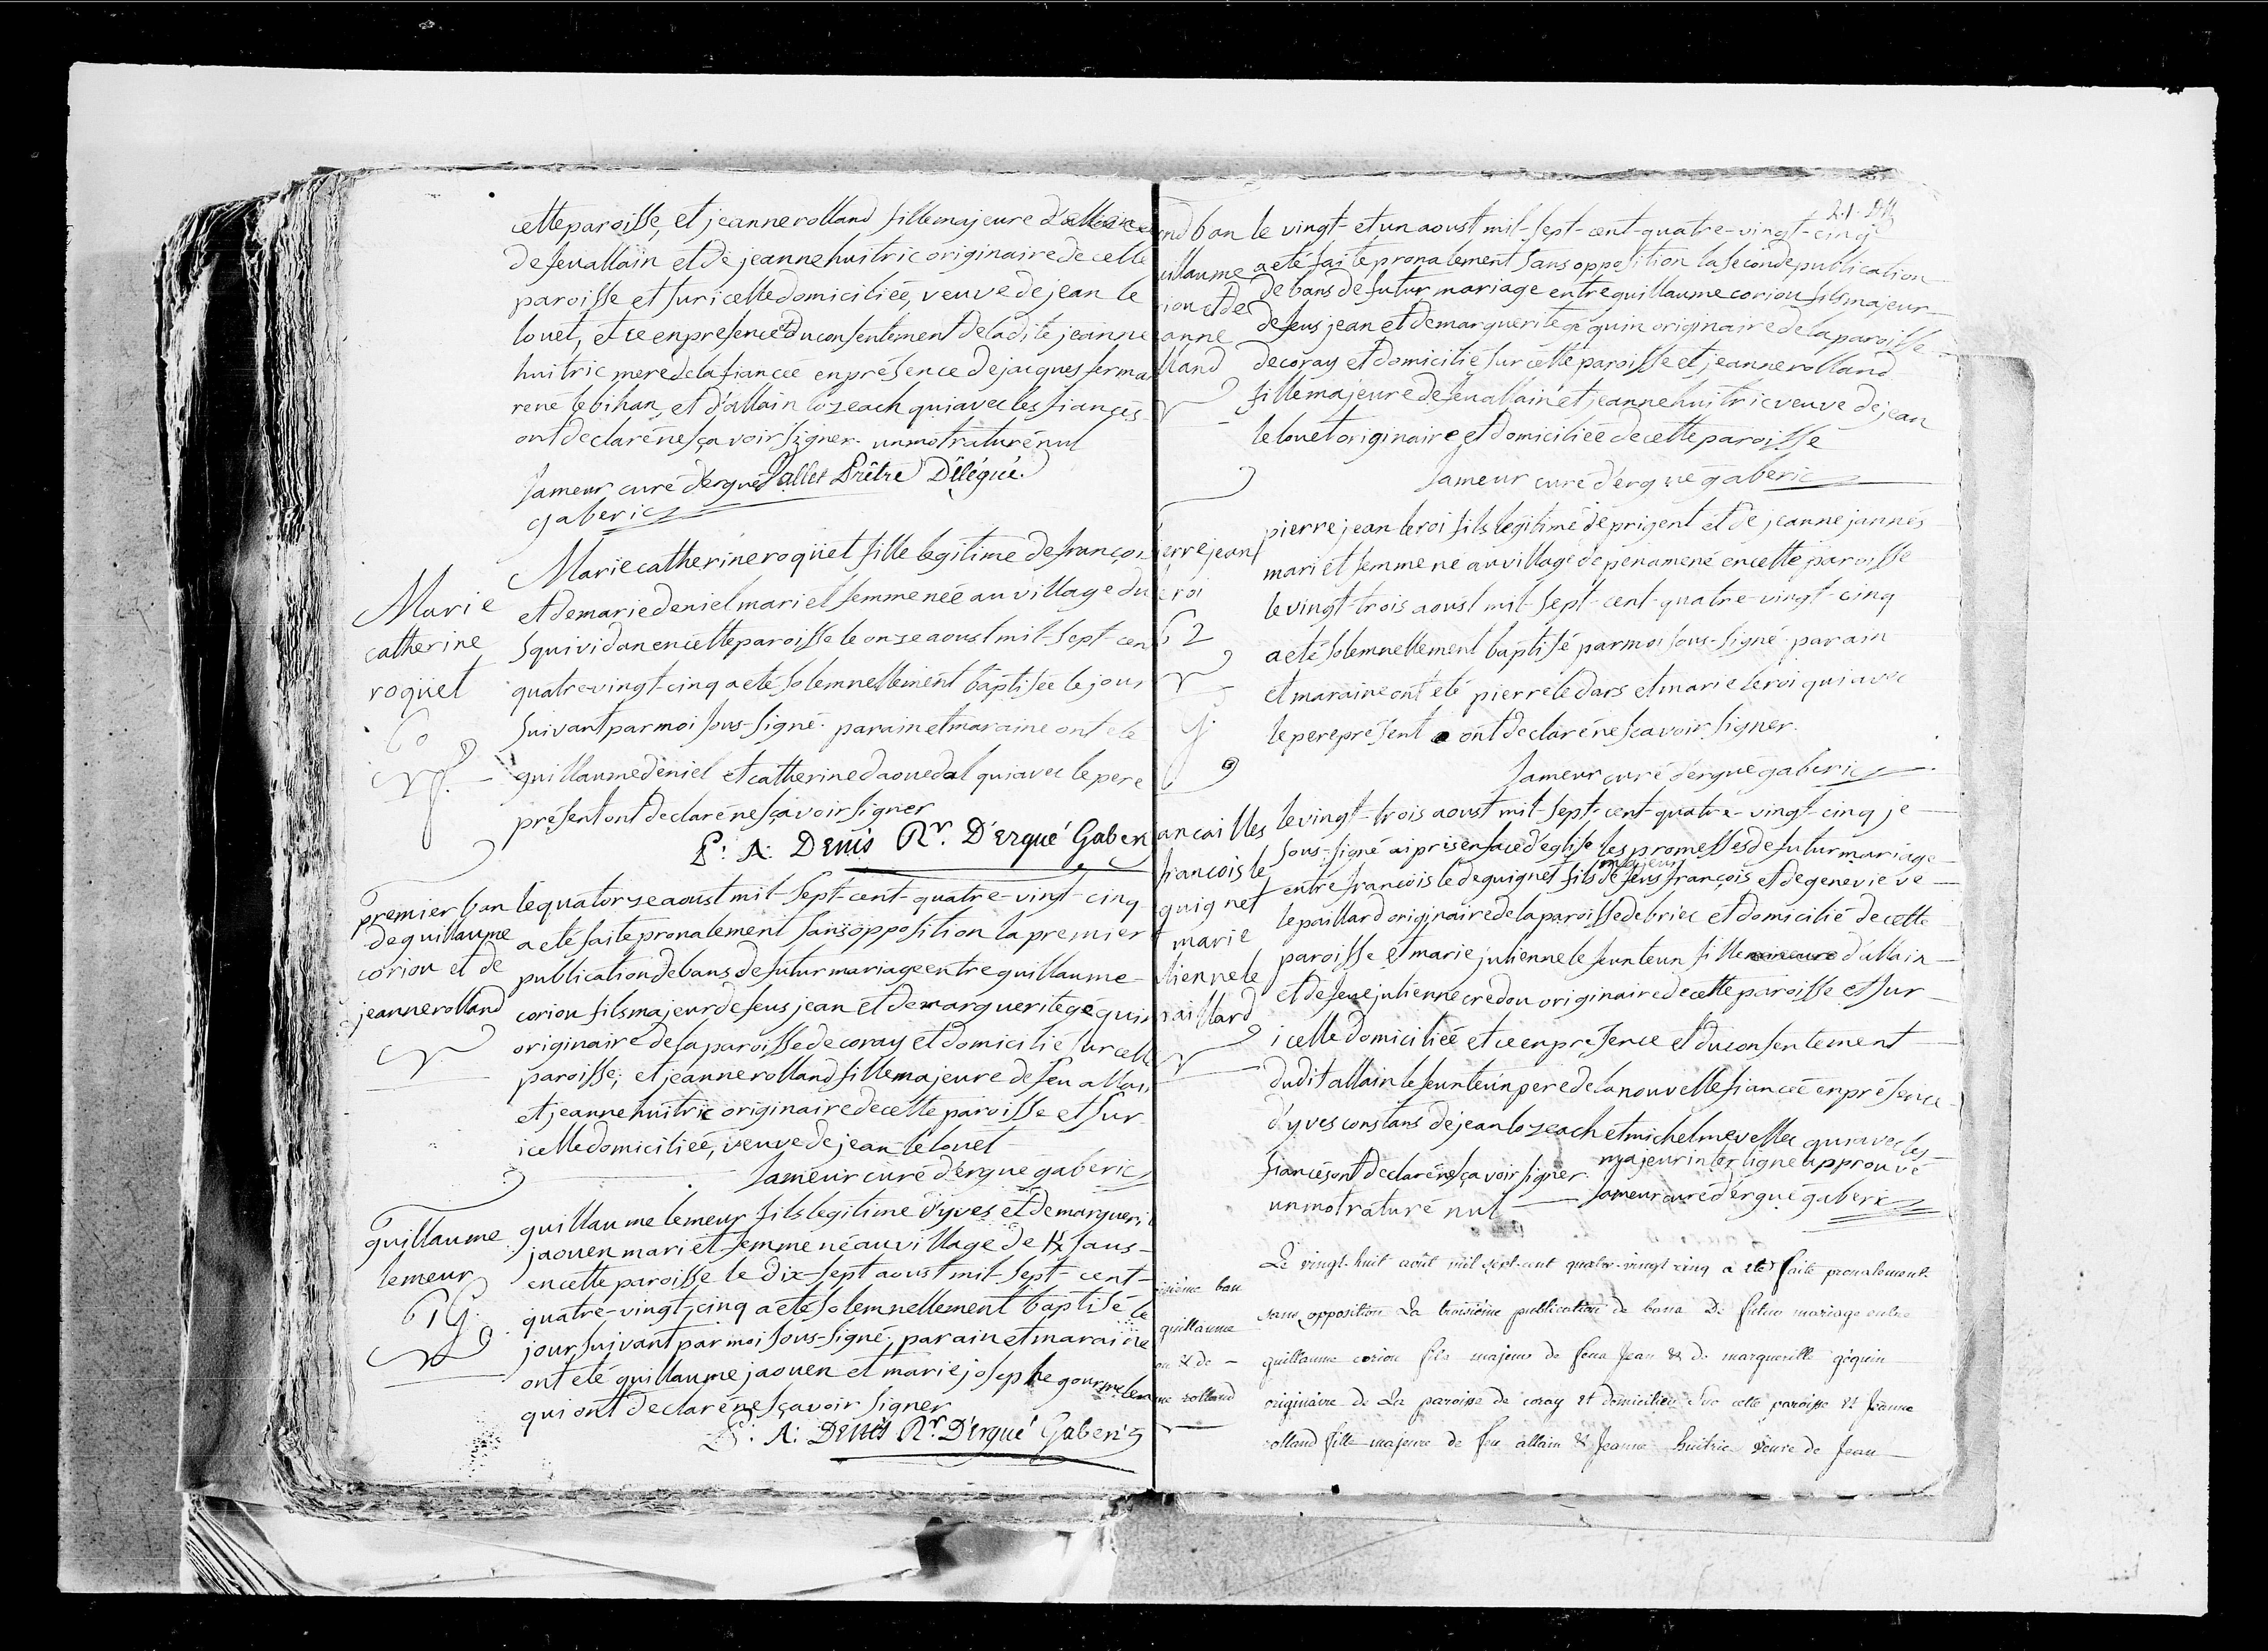 cette paroisse, et jeanne rolland fille majeure
de feu allain et de jeanne huitric originaire de cette
paroisse et sur icelle domiciliée, veuve de jean le
louet, et ce en presence et du consentement de ladite jeanne
huitric mere de la fiancée en présence de jacques
rené le bihan, et d'allain lozeach qui avec les fiancés
ont declaré ne sçavoir signer. un mot raturé nul
Lameur curé d'ergué Sallet Prêtre Délégué.
gaberic
Marie
catherine
roquet
60
Marie catherine roquet fille legitime de françois
et de marie deniel mari et femme née au village du
squividan en cette paroisse le onze aoust mil-sept-cen
quatre-vingt-cinq a eté solemnellement baptisée le jour
suivant par moi sous-signé. parain et maraine ont eté
guillaume deniel et catherine daouedal qui avec le pere
présent ont declaré ne sçavoir signer
A: Denis Rr. D'ergué Gaberi
premier ban
de guillaume
coriou et de
jeanne rolland
le quatorze aoust mil-sept-cent-quatre-vingt-cinq
a eté faite pronalement sans opposition la premier
publication de bans de futur mariage entre guillaume
coriou fils majeur de feus jean et de marguerite géquin
originaire de la paroisse de coray et domicilié sur cette
paroisse; et jeanne rolland fille majeure de feu allain
et jeanne huitric originaire de cette paroisse et sur
icelle domiciliée, veuve de jean le louet
Lameur curé d'ergué gaberic
guillaume
lemeur
61 G.
guillaume lemeur fils legitime d'yves et de margueri
jaouen mari et femme né au village de
en cette paroisse le dix-sept aoust mil-sept-cent-
quatre-vingt-cinq a eté solemnellement baptisé le
jour suivant par moi sous-signé. parain et maraine
ont eté guillaume jaouen et marie josephe gourmelen
qui ont declaré ne sçavoir signer
A: Denis Rr. D'ergué Gaberic
21
nd ban
uillaume
iou et de
anne
lland
le vingt-et un aoust mil-sept-cent-quatre-vingt-cinq
a eté faite pronalement sans opposition la seconde publication
de bans de futur mariage entre guillaume coriou fils majeur
de feus jean et de marguerite géquin originaire de la paroisse
de coray et domicilié sur cette paroisse et jeanne rolland
fille majeure de feu allain et jeanne huitric veuve de jean
le louet originaire et domiciliée de cette paroisse
Lameur curé d'ergué gaberic
erre jean
e roi
62
G.
pierre jean le roi fils legitime de prigent et de jeanne jannés
mari et femme né au village de penamené en cette paroisse
le vingt-trois aoust mil-sept-cent-quatre-vingt-cinq
a eté solemnellement baptisé par moi sous-signé. parain
et maraine ont eté pierre le dars et marie le roi qui avec
le pere présent ont declaré ne sçavoir signer.
Lameur curé d'ergué gaberic
ancailles
françois le
guignet
t marie
lienne le
aillard
le vingt-trois aoust mil-sept-cent-quatre-vingt-cinq je
sous-signé ai pris en face d'église les promesses de futur mariage
majeur
entre françois le deguignet fils de feus françois et de genevieve
le paillard originaire de la paroisse de briec et domicilié de cette
paroisse et marie julienne le feunteun fille d'allain
et de feue julienne credou originaire de cette paroisse et sur
icelle domiciliée et ce en présence et du consentement
dudit allain le feunteun pere de la nouvelle fiancée en présence
d'yves constans de jean lozeach et michel mevellec qui avec les
fiancés ont declaré ne sçavoir signer. majeur interligne approuvé
un mot raturé nul Lameur curé d'ergué gaberic
isième ban
guillaume
ou et de
ne rolland
Le vingt-huit août mil sept-cent quatre-vingt cinq a été faite pronalement
sans opposition La troisième publication de bans De futur mariage entre
guillaume coriou fils majeur de feus Jean et de marguerite géquin
originaire de La paroisse de coray et domicilié Sur cette paroisse et Jeanne
rolland fille majeure de feu allain et Jeanne huitric veuve de Jean